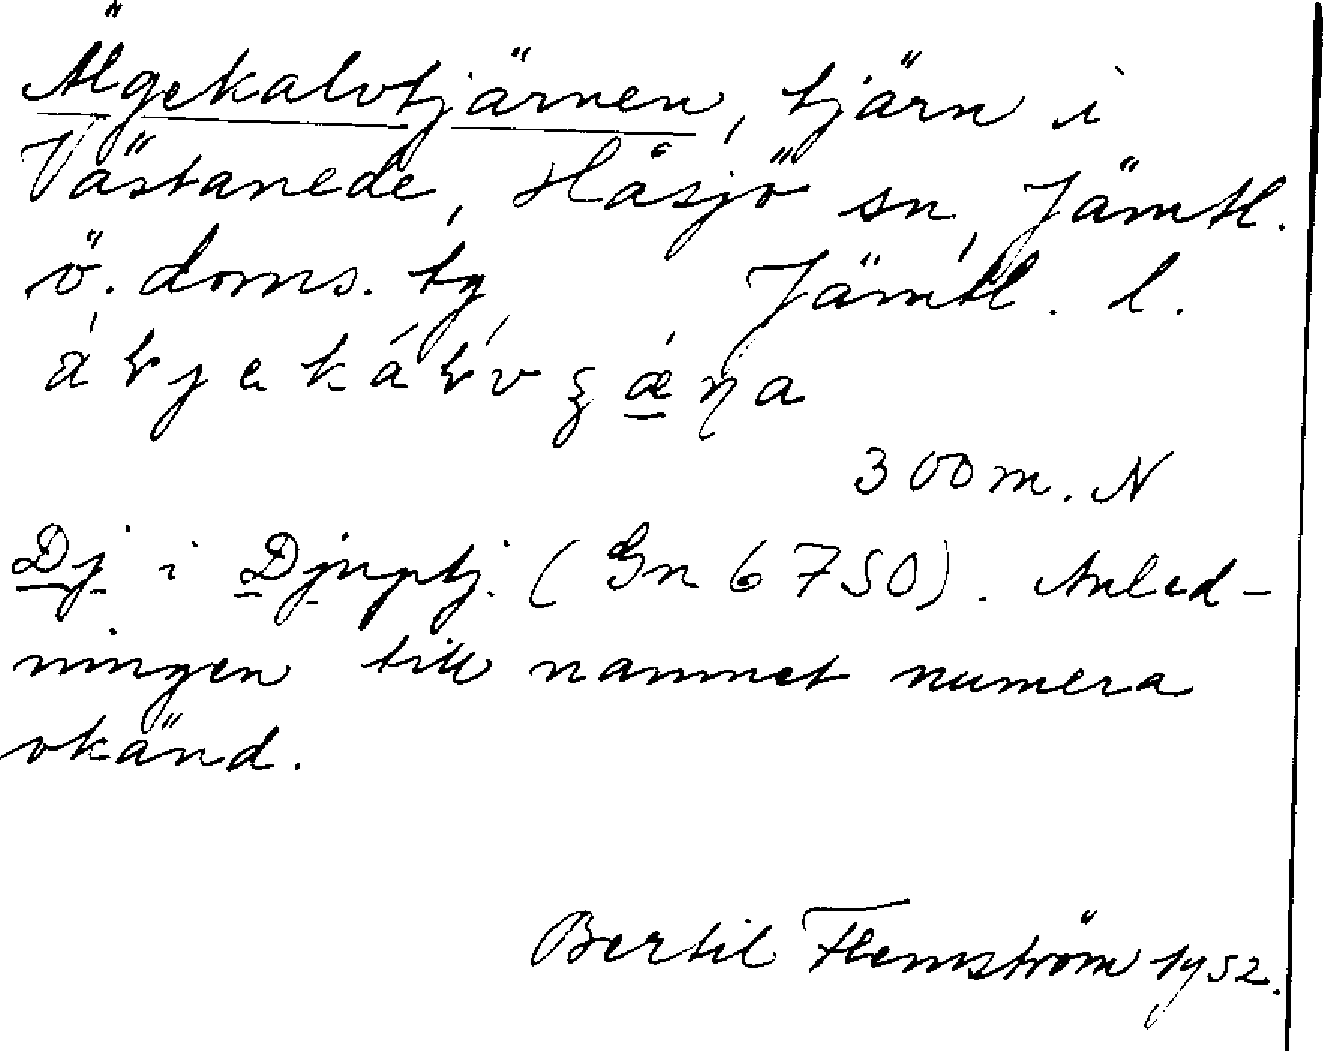 Älgekalvtjärnen, tjärn i
Västanede, Håsjö sn, Jämtl.
ö. doms. tg, Jämtl. l.
300 m. N
Dj i Djuptj. (Gn 6750). Anled-
ningen till namnet numera
okänd.
Bertil Flemström 1952.